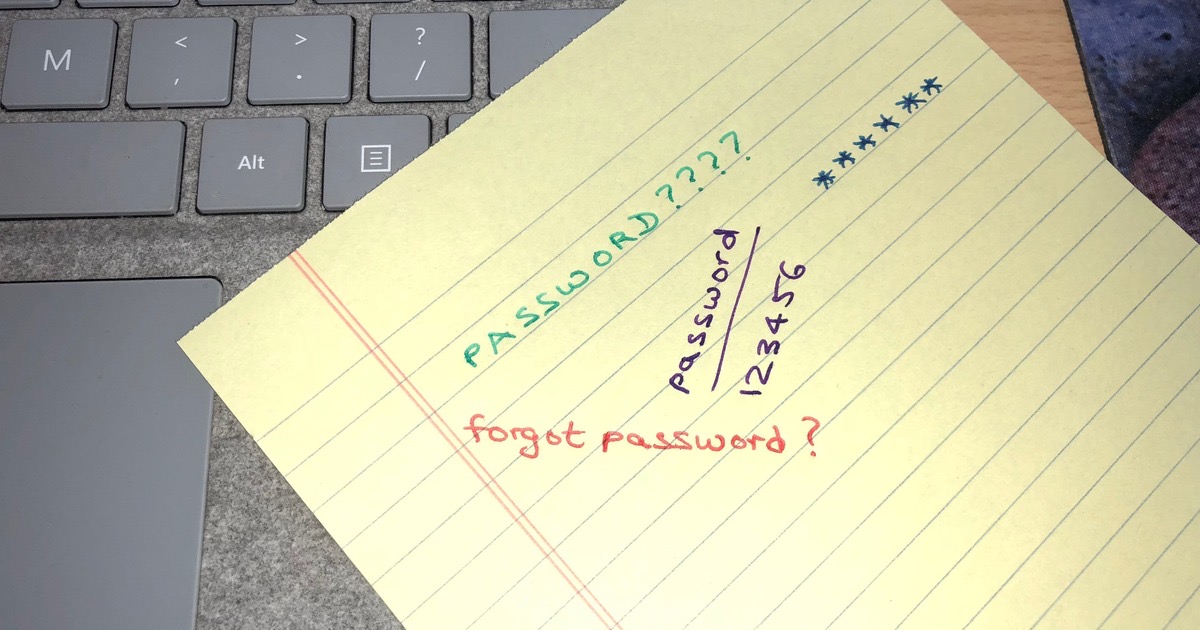 M
<
,
>
.
?
/
Alt
PASSWORD????
******
password
123456
forgot password?